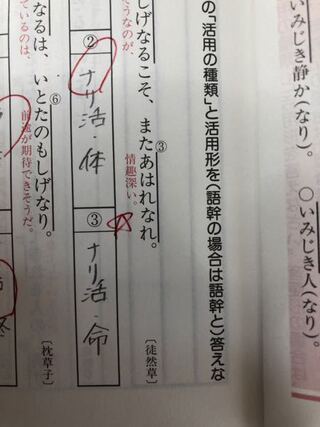 いみじき静か(なり)。　○いみじき人(なり)。
の「活用の種類」と活用形を(語幹の場合は語幹と)答えな
③
しげなるこそ、またあはれなれ。
そうなのが、　情趣深い。
〔徒然草〕
②　ナリ活・体　③　ナリ活・命
⑥
なるは、いとたのもしげなり。
ているのは、　前途が期待できそうだ。
〔枕草子〕